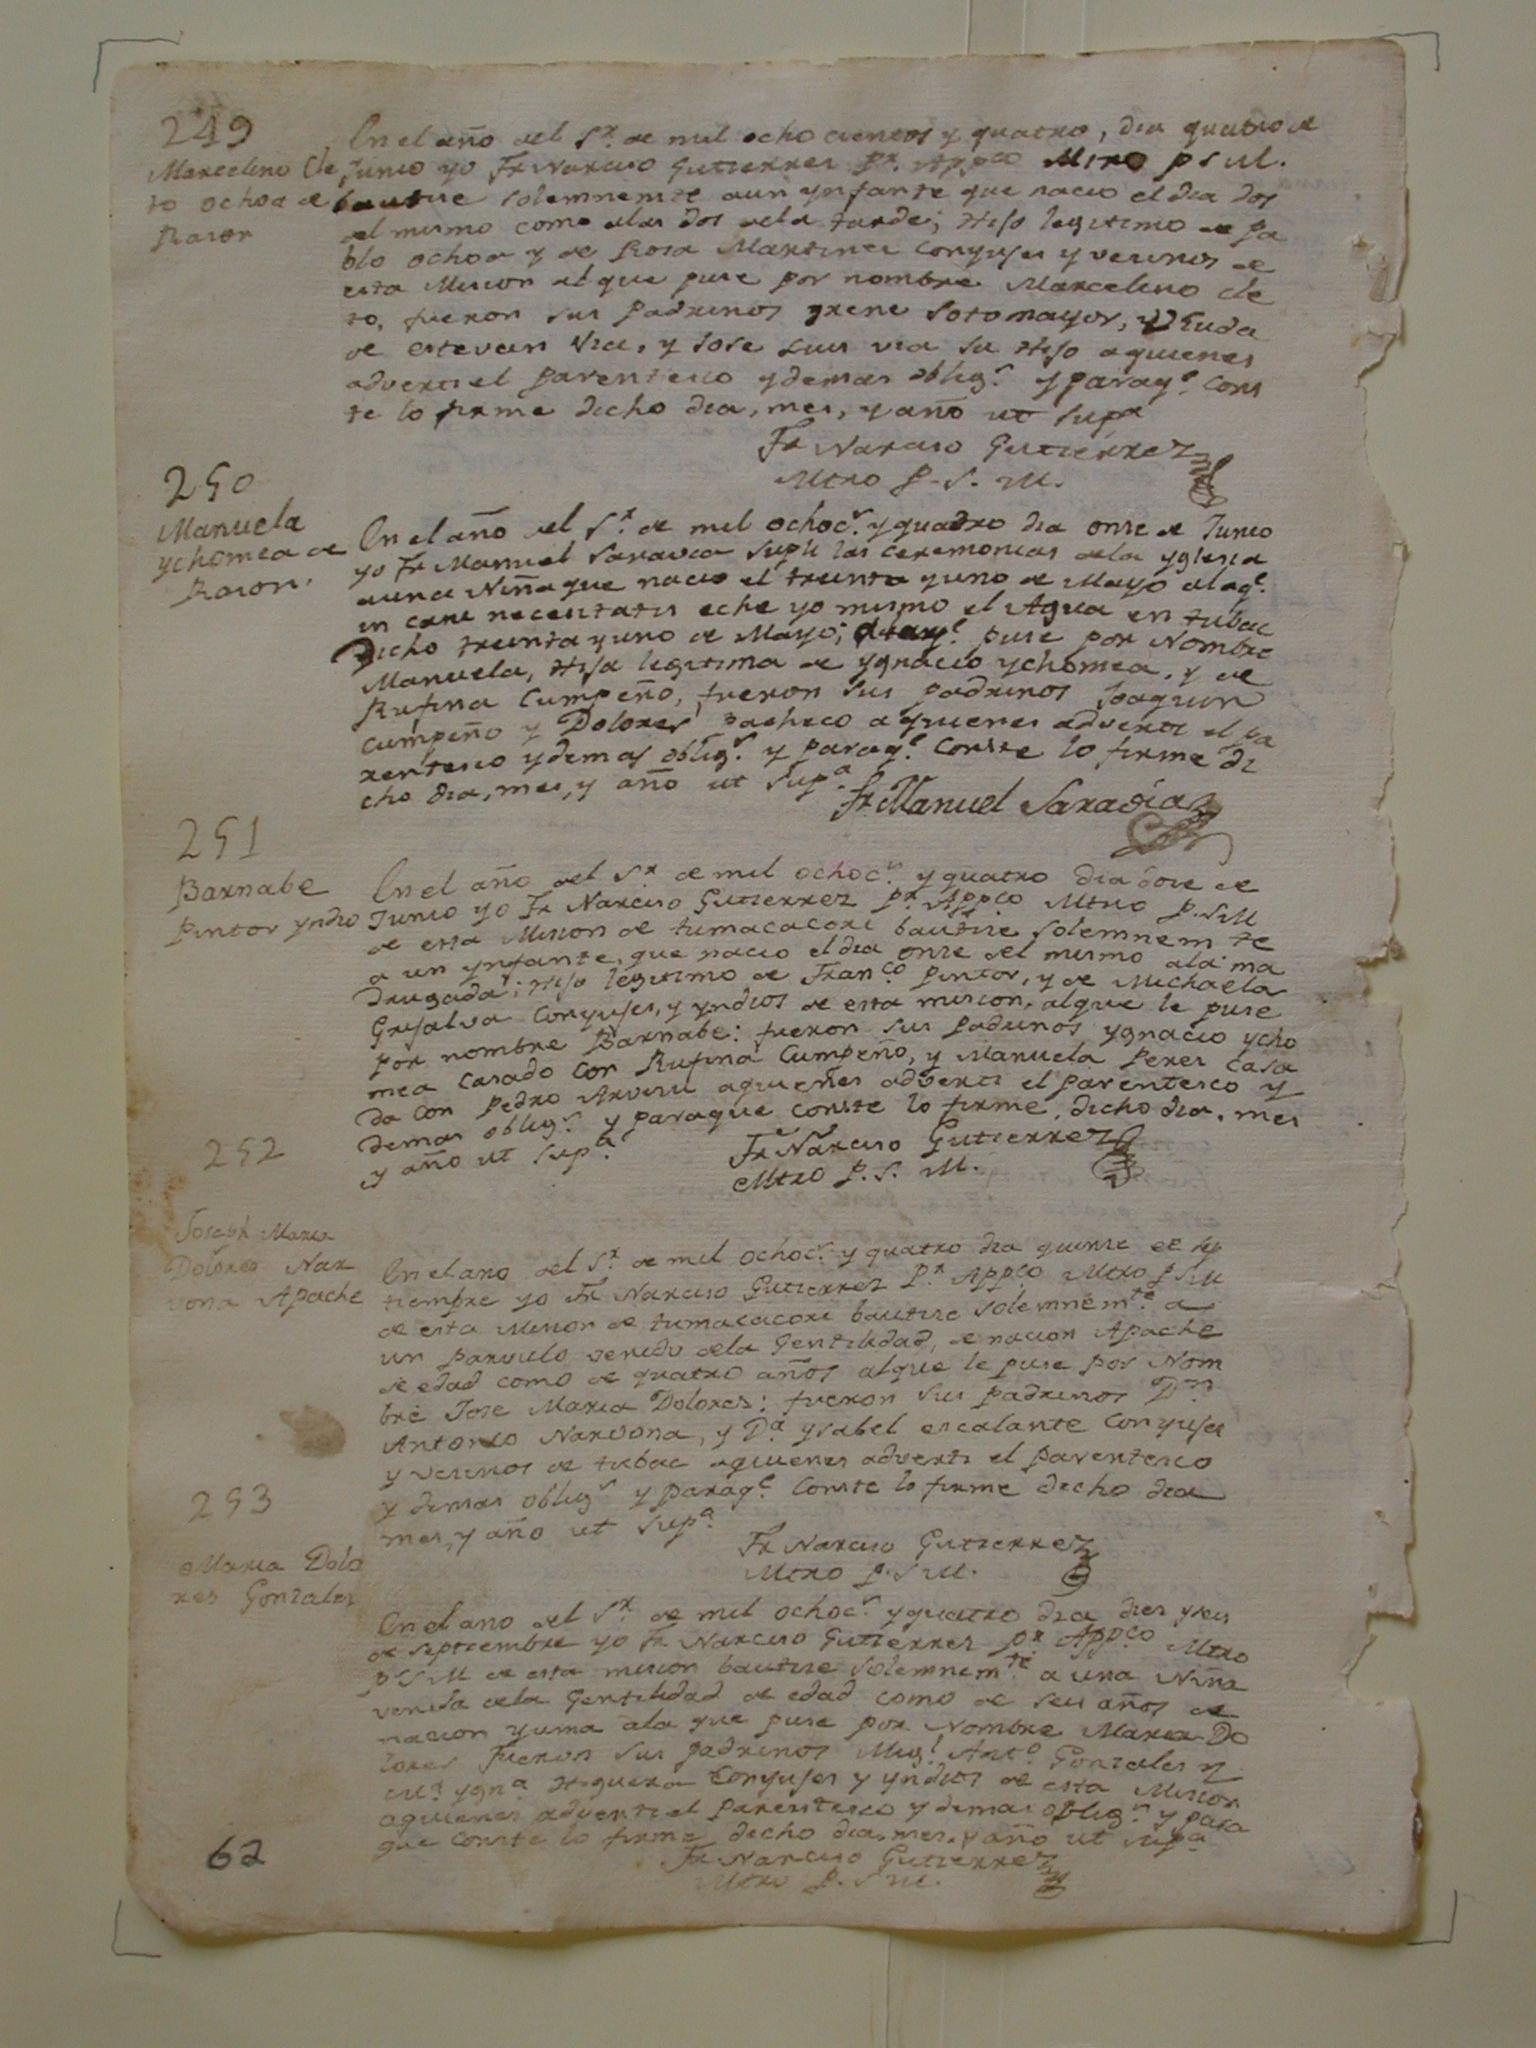 249
Marcelino Cle
to ochoa de
Rason
En el año del Sr. de mil ocho cientos y quatro, dia quatro de
Junio yo Fr Narciso Gutierres Pr. Appco Mtro p s M.
bautise solemnemte a un ynfante que nacio el dia dos
del mismo como a las dos de la tarde; Hijo legitimo de Pa
blo ochoa y de Rosa Martines Conyuges y vesinos de
esta Mision al que puse por nombre Marcelino Cle
to, fueron sus Padrinos yrene Sotomayor, Viuda
de estevan Via, y Jose Luis via su Hijo a quienes
adverti el parentesco y demas oblig.s y para q.e Cons
te lo firme dicho dia, mes, y año ut Supa
Fr Narciso Gutierrez
Mtro P. S. M.
250
Manuela
ychomea de
Rason.
En el año del Sr. de mil ochoc.s y quadro dia onse de Junio
yo Fr Manuel Saravia supli las ceremonias de la yglesia
a una Niña que nacio el treinta y uno de Mayo a la q.e
in casu necesitatis eche yo mismo el Agua en tubac
Dicho treinta y uno de Mayo; puse por Nombre
Manuela, Hija legitima de ygnacio ychomea, y de
Rufina Cumpeño, fueron sus padrinos Joaquin
Cumpeño y Dolores Pacheco a quienes adverti el pa
rentesco y demas oblig.s y para q.e Conste lo firme di
cho dia, mes, y año ut Sup.a
Fr Manuel Saravia
251
Barnabe
Pintor yndio
En el año del Sr. de mil ochoc.s y quatro dia dose de
Junio yo Fr Narciso Gutierrez Pr. Appco Mtro P. S M
de esta Mision de tumacacori bautise solemnem te
a un ynfante, que nacio el dia onse del mismo a la ma
drugada; Hijo legitimo de Fran.co Pintor, y de Michaela
Grijalva Conyuges, y yndios de esta mision, al que le puse
por nombre Barnabe: fueron sus Padrinos ygnacio ycho
mea Casado con Rufina Cumpeño, y Manuela Peres Casa
da con Pedro a quienes adverti el parentesco y
demas oblig.s y para que conste lo firme, dicho dia, mes
y año ut Sup.a
Fr Narciso Gutierrez
Mtro P. S. M.
252
Joseph Maria
Dolores Nar
vona Apache
En el ano del Sr. de mil ochoc.s y quatro dia quinse de sep
tiembre yo Fr Narciso Gutierrez Pr. Appco Mtro P S M
de esta Mision de tumacacori bautise solemnem.te a
un parvulo venido de la Gentilidad, de nacion Apache
de edad como de quatro años al que le puse por Nom
bre Jose Maria Dolores: fueron sus padrinos Dn
Antonio Narvona, y D.a ysabel escalante Conyuges
y vesinos de tubac a quienes adverti el parentesco
y demas oblig.s y para q.e Conste lo firme dicho dia
mes, y año ut Sup.a
Fr Narciso Gutierrez
Mtro P. S M.
253
Maria Dolo
res Gonzales
En el ano del Sr. de mil ochoc.s y quatro dia dies y seis
de septiembre yo Fr Narciso Gutierres Pr Appco Mtro
P S M de esta mision bautise solemnem.te a una Niña
venida de la Gentilidad de edad como de seis años de
nacion yuma a la que puse por Nombre Maria Do
lores fueron sus padrinos Mig.l Ant.o Gonzales y
M.a ygn.a Higuera Conyuges y yndios de esta Mision
a quienes adverti el parentesco y demas oblig.s y para
que Conste lo firme dicho dia, mes, y año ut supa
Fr Narciso Gutierrez
Mtro P. S M.
62